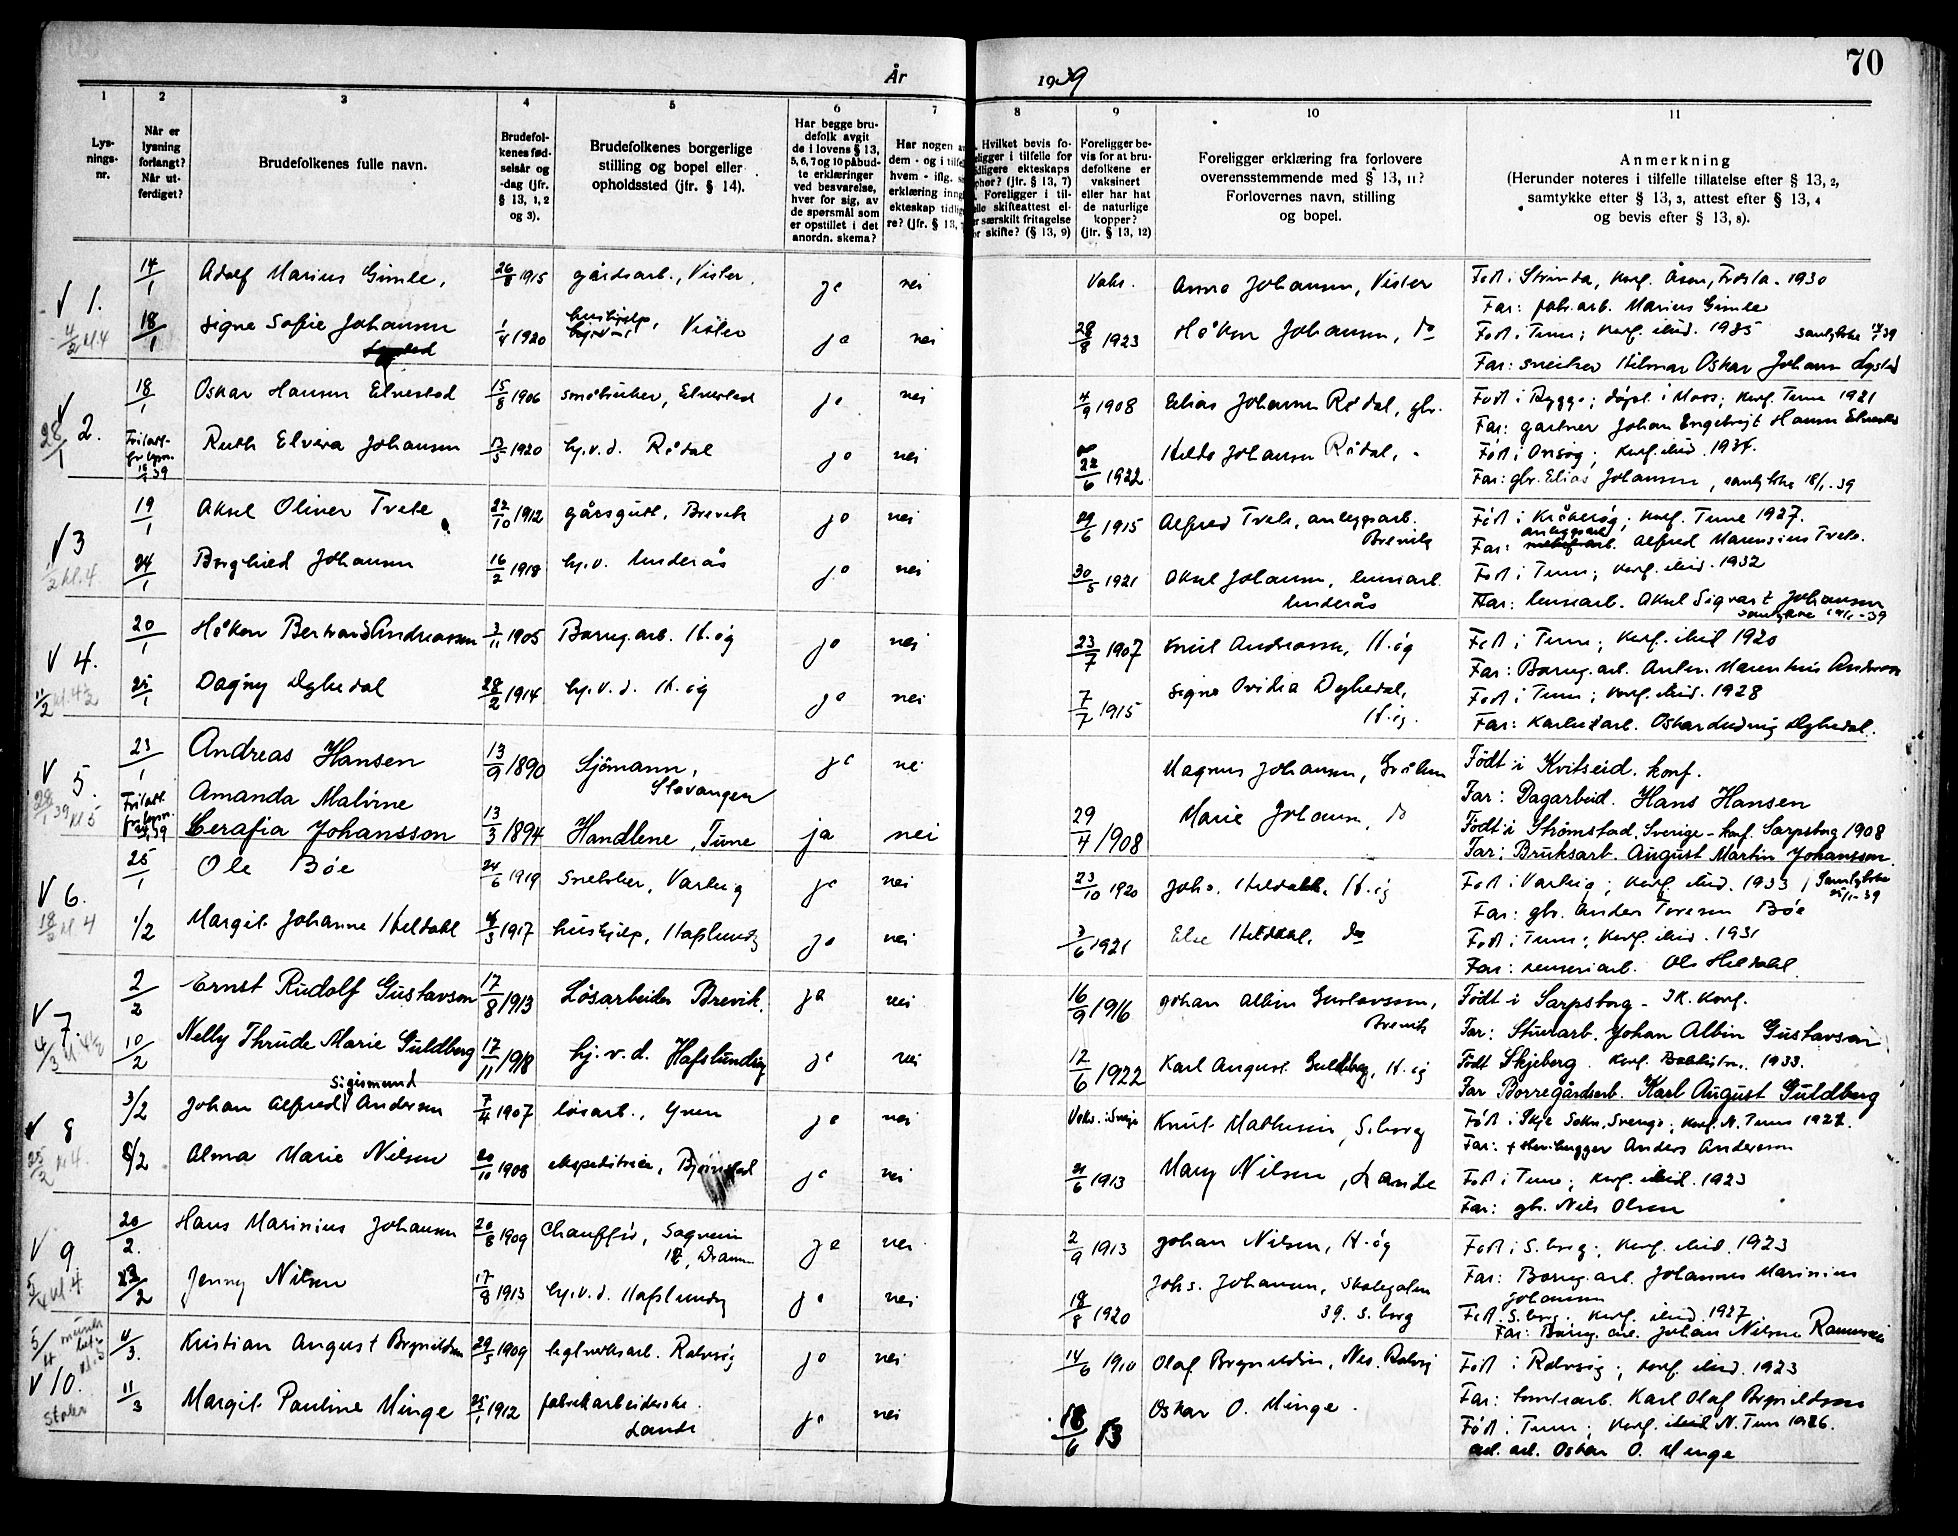 70
År 1939
1 2 3 4 5 6 7 8 9 10 11
Lys-
nings-
nr.
Når er
lysning
forlangt?
Når ut-
ferdiget?
Brudefolkenes fulle navn.
Brudefol-
kenes fød-
selsår og
-dag (jfr.
§ 13, 1, 2
og 3).
Brudefolkenes borgerlige
stilling og bopel eller
opholdssted (jfr. § 14).
Har begge bru-
defolk avgit
de i lovens § 13,
5, 6, 7 og 10 påbud-
te erklæringer
ved besvarelse,
hver for sig, av
de spørsmål som
er opstillet i det
anordn. skema?
Har nogen a
dem - og i tilfel
hvem - iflg.
erklæring inng
ekteskap tidlig
re? (jfr. § 13,
Hvilket bevis fo-
religger i tilfelle for
dligere ekteskaps
ophør? (jfr. § 13, 7)
Foreligger i til-
elle skifteattest el-
er særskilt fritagelse
or skifte? (§ 13, 9)
Foreligger be-
vis for at bru-
defolkene er
vaksinert
eller har hat
de naturlige
kopper?
(jfr. § 13, 12)
Foreligger erklæring fra forlovere
overensstemmende med § 13, 11?
Forlovernes navn, stilling
og bopel.
Anmerkning
(Herunder noteres i tilfelle tillatelse efter § 13, 2,
samtykke efter § 13, 3, attest efter § 13, 4
og bevis efter § 13, 8).
V 1. 14/1 Adolf Marius Gimle, 26/8 1915 gårdsarb., Vister. ja nei Vaks. Anna Johansen, Vister Født i Strinda, konf. Åsen, Frosta. 1930
Far: fabr.arb. Marius Gimle
4/2 kl. 4 18/1 Signe Sofie Johansen 1/4 1920 hushjelp, Vister ja nei 28/8 1923 Håkon Johansen, do Født i Tune; konf. ibid. 1935 samtykke
Far: snekker Hilmar Oskar Johansen Lysted
V 2. 18/1 Oskar Hansen Elvestad 15/8 1906 småbruker, Elvestad ja nei 4/9 1908 Elias Johansen Rådal, gbr. Født i Rygge; døpt i Moss; konf. Tune 1921
Far: gartner Johan Engebrigt Hansen Elvestad
28/1 Ruth Elvira Johansen 1920 hj.v.d. Rådal ja nei 22/6 1922 Hilda Johansen Rådal, Født i Onsøy; konf. ibid. 1934.
Far: gbr. Elias Johansen, samtykke 18/1-39
V 3 19/1 Aksel Oliver Tvete 22/10 1912 gårdsgutt, Brevik ja nei 29/6 1915 Alfred Tvete, anleggsarb.
Brevik
Født i Kråkerøy; konf. Tune 1927.
Far: anleggsarb. Alfred Marensius Tvete.
1/2 kl. 4. 24/1 Borghild Johansen 16/2 1918 hj.v. Lunderås ja nei 30/5 1921 Aksel Johansen, lensearb.
Lunderås
Født i Tune; konf. ibid. 1932
Far: lensearb. Aksel Sigvart Johansen
samtykke 19/1-39
V 4. 20/1 Håkon Bertrand Andreassen 3/11 1905 Borreg.arb. H.øy ja nei 23/7 1907 Emil Andreassen, H.øy Født i Tune; konf. ibid 1920
Far: Borreg.arb. Anton Marentius Andreassen
11/2 kl. 4½ 25/1 Dagny Dyhedal 28/2 1914 hj.v.d. H.øy ja nei 7/7 1915 Signe Ovidia Dyhedal,
H.øy.
Født i Tune; konf. ibid. 1928
Far: Karbidarb. Oskar Ludvig Dyhedal.
V 5. 23/1 Andreas Hansen 13/9 1890 Sjømann,
Stavanger
ja nei Magnus Johansen, Født i Kvitseid. konf.
Far: Dagarbeid. Hans Hansen
28/1 39 kl 5 Amanda Malvine
Serafia Johansson 13/3 1894 Handlene, Tune ja nei 29/4 1908 Marie Johansen, do Født i Strømstad, Sverige - konf. Sarpsborg 1908
Far: Bruksarb. August Martin Johansson.
V 6. 25/1 Ole Bøe 24/6 1919 snekker, Varteig ja nei 23/10 1920 Johs. Heldahl, H.øy Født i Varteig; konf. ibid. 1933 / Samtykke 25/1-39
Far: gbr. Anders Toresen Bøe
18/2 kl 4 1/2 Margit Johanne Heldahl 4/3 1917 hushjelp, Hafslundøy ja nei 3/6 1921 Else Heldahl, do Født i Tune; konf. ibid. 1931
Far: renseriarb. Ole Heldahl
V 7. 2/2 Ernst Rudolf Gustavson 17/8 1913 Løsarbeider Brevik. ja nei 16/9 1916 Johan Albin Gustavsson,
Brevik
Født i Sarpsborg - IK. konf.
Far: Stuarb. Johan Albin Gustavson
4/3 kl 4½ 10/2 Nelly Thrude Marie Guldberg 17/11 1918 hj.v.d. Hafslundøy ja nei 17/6 1922 Karl August Guldberg, H.øy Født Skjeberg. konf. 1933.
Far Borregårdsarb. Karl August Guldberg
V 8 3/2 Johan Alfred Sigismund Andersen 7/4 1907 løsarb., Gren ja nei Vaks. i Sverige Knut Mathisen, S.borg Født i Skje Sokn, Sverige; konf. N. Tune 1922.
Far: + stenhugger Anders Andersson
25/2 kl 4. 8/2 Alma Marie Nilsen 20/10 1908 ekspeditrice, Bjørnstad ja nei 21/6 1913 Mary Nilsen, Lande Født i Tune; konf. ibid. 1923
Far: gbr. Nils Olsen
V 9 20/2. Hans Marinius Johansen 20/8 1909 Chauffør, Sagveien
12, Dramm
ja nei 2/9 1913 Johan Nilsen, H.øy Født i S.borg; konf. ibid. 1923
Far: Borreg.arb. Johannes Marinius
Johansen
5/4 kl. 4 23/2 Jenny Nilsen 17/8 1913 hj.v.d. Hafslundøy ja nei 18/8 1920 Johs. Johansen, Skolegaten
39. S.borg
Født S.borg; konf. ibid. 1927
Far: Borreg. arb. Johan Nilsen
V 10. 5/4 11/3. Kristian August Brynildsen 29/5 1909 teglverksarb. Rolvsøy ja nei 14/6 1910 Olaf Brynildsen, Nes. Rolvsøy Født i Rolvsøy; konf. ibid. 1923
Far: tomtearb. Karl Olaf Brynildsen
11/3 Margit Pauline Minge 25/1 1912 fabrikkarbeiderske.
Lande
ja nei 18/6 13 Oskar O. Minge. Født i Tune; konf. N. Tune 1926.
arb. Oskar O. Minge